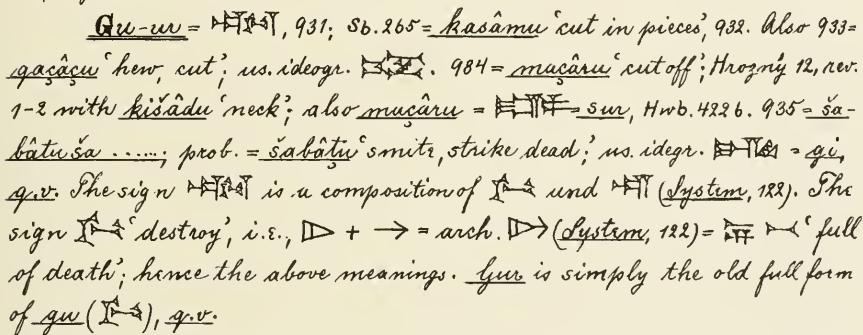 Gu-ur = 𒄥, 931; Sb. 265 = kasâmu ‘cut in pieces’, 932. Also 933 =
qaçâçu ‘hew, cut’; us. ideogr. . 984 = maçâru ‘cut off’; Hrozný 12, rev.
1-2 with kišâdu ‘neck’; also muçâru = = sur, Hwb. 422b. 935 = ša-
bâtu ša ......; prob. = šabâṭu ‘smite, strike dead’; us. idegr. = gi,
q.v. The sign is a composition of und (System, 122). The
sign ‘destroy’, i.e., + → = arch. (System, 122) = ‘full
of death’; hence the above meanings. Gur is simply the old full form
of gu ( ), q.v.